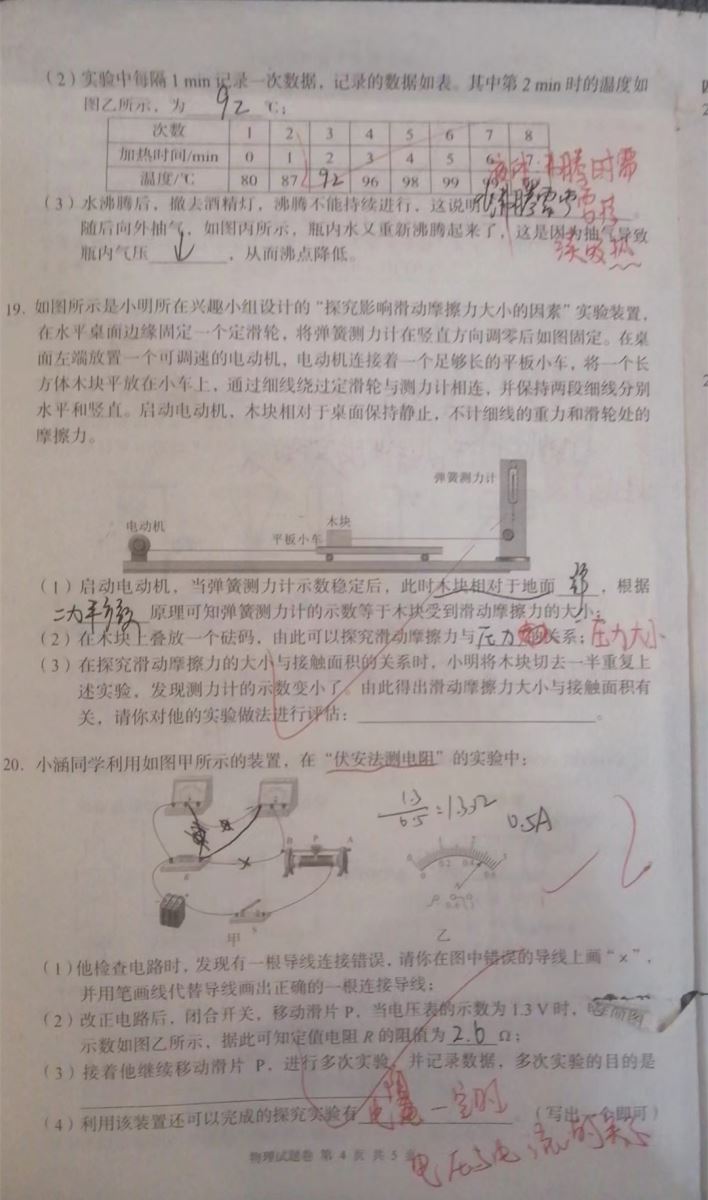 (2)实验中每隔1 min记录一次数据，记录的数据如表。其中第2 min时的温度如
图乙所示，为 92 ℃；
次数 1 2 3 4 5 6 7 8
加热时间/min 0 1 2 3 4 5 6 7
温度/℃ 80 87 92 96 98 99
液体沸腾时需
(3)水沸腾后，撤去酒精灯，沸腾不能持续进行，这说明
随后向外抽气，如图丙所示，瓶内水又重新沸腾起来了，这是因为抽气导致
瓶内气压 ↓ ，从而沸点降低。
19. 如图所示是小明所在兴趣小组设计的“探究影响滑动摩擦力大小的因素”实验装置，
在水平桌面边缘固定一个定滑轮，将弹簧测力计在竖直方向调零后如图固定。在桌
面左端放置一个可调速的电动机，电动机连接着一个足够长的平板小车，将一个长
方体木块平放在小车上，通过细线绕过定滑轮与测力计相连，并保持两段细线分别
水平和竖直。启动电动机，木块相对于桌面保持静止，不计细线的重力和滑轮处的
摩擦力。
弹簧测力计
电动机
木块
平板小车
(1)启动电动机，当弹簧测力计示数稳定后，此时木块相对于地面 ，根据
二力平衡 原理可知弹簧测力计的示数等于木块受到滑动摩擦力的大小；
(2)在木块上叠放一个砝码，由此可以探究滑动摩擦力与 压力 的关系；压力大小
(3)在探究滑动摩擦力的大小与接触面积的关系时，小明将木块切去一半重复上
述实验，发现测力计的示数变小了。由此得出滑动摩擦力大小与接触面积有
关，请你对他的实验做法进行评估：
20. 小涵同学利用如图甲所示的装置，在“伏安法测电阻”的实验中：
0.5A
B P A
R
S
甲
乙
(1)他检查电路时，发现有一根导线连接错误，请你在图中错误的导线上画“×”，
并用笔画线代替导线画出正确的一根连接导线；
(2)改正电路后，闭合开关，移动滑片P，当电压表的示数为1.3 V时，
示数如图乙所示，据此可知定值电阻R的阻值为 2.6 Ω；
(3)接着他继续移动滑片P，进行多次实验，并记录数据，多次实验的目的是
(4)利用该装置还可以完成的探究实验有 电阻一定时 。（写出一个即可）
电压与电流的关系
物理试题卷 第4页 共5页